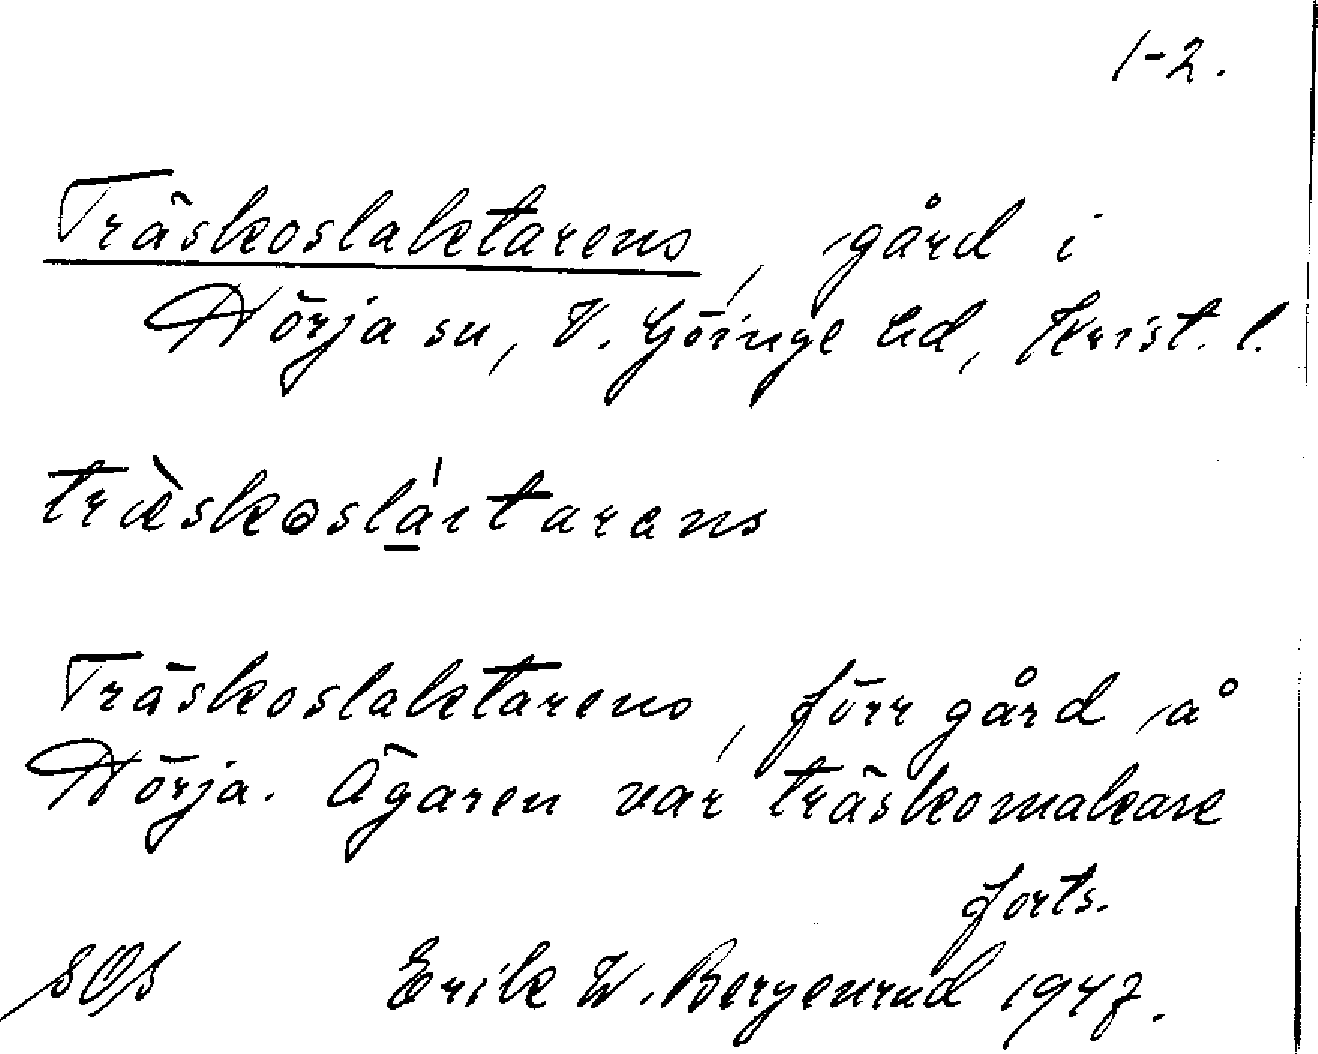 1-2.
Träskoslaktarens, gård i
Hörja sn, V. Göinge hd, Krist. l.
træ̀skoslái̯tarens
Träskoslaktarens, förr gård å
Hörja. Ägaren var träskomakare
forts.
SOS Erik W. Bergenrud 1947.